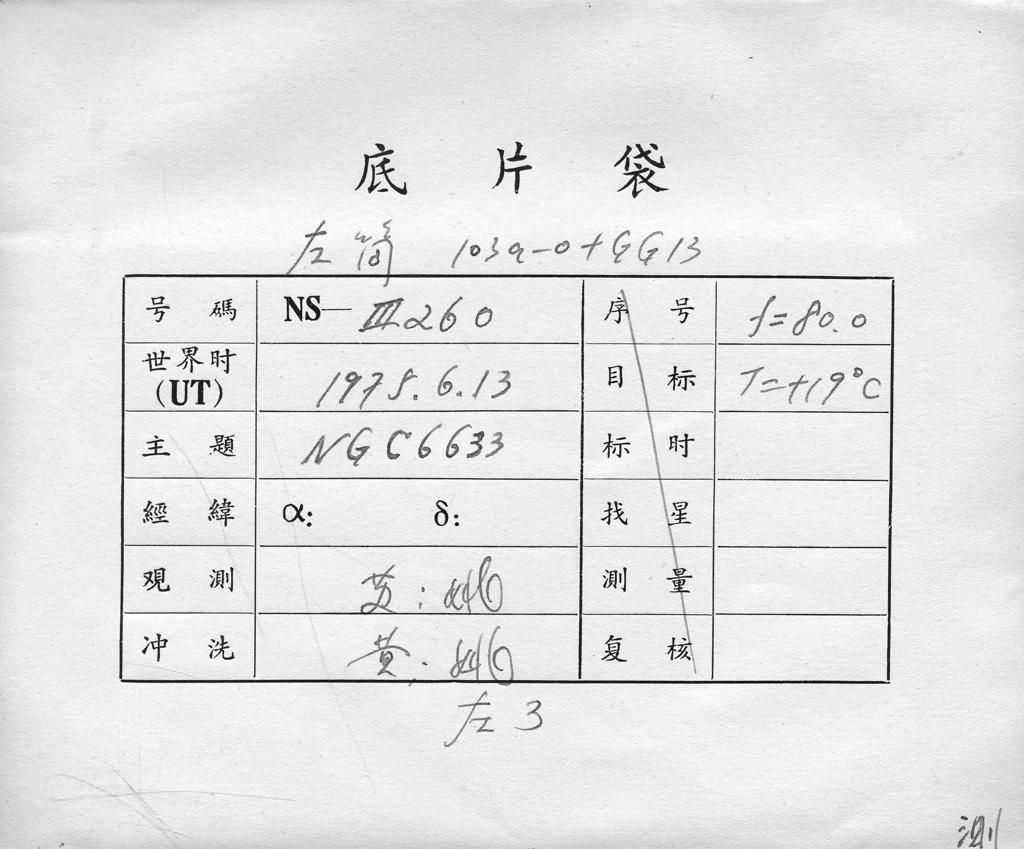 底 片 袋
左筒 103a-0+GG13
号 碼 NS—Ⅲ260 序 号 f=80.0
世界时 (UT) 1975.6.13 目 标 T=+19°C
主 題 NGC6633 标 时
經 緯 α: δ: 找 星
观 測 苏: 测 量
冲 洗 黄. 复 核
左3
测